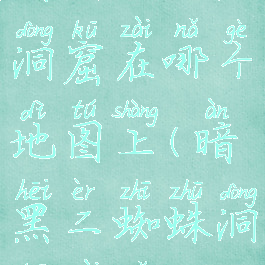 dòng kū zài nǎ gè
洞窟在哪个
dì tú shàng àn
地图上(暗
hēi èr zhī zhū dòng
黑二蜘蛛洞